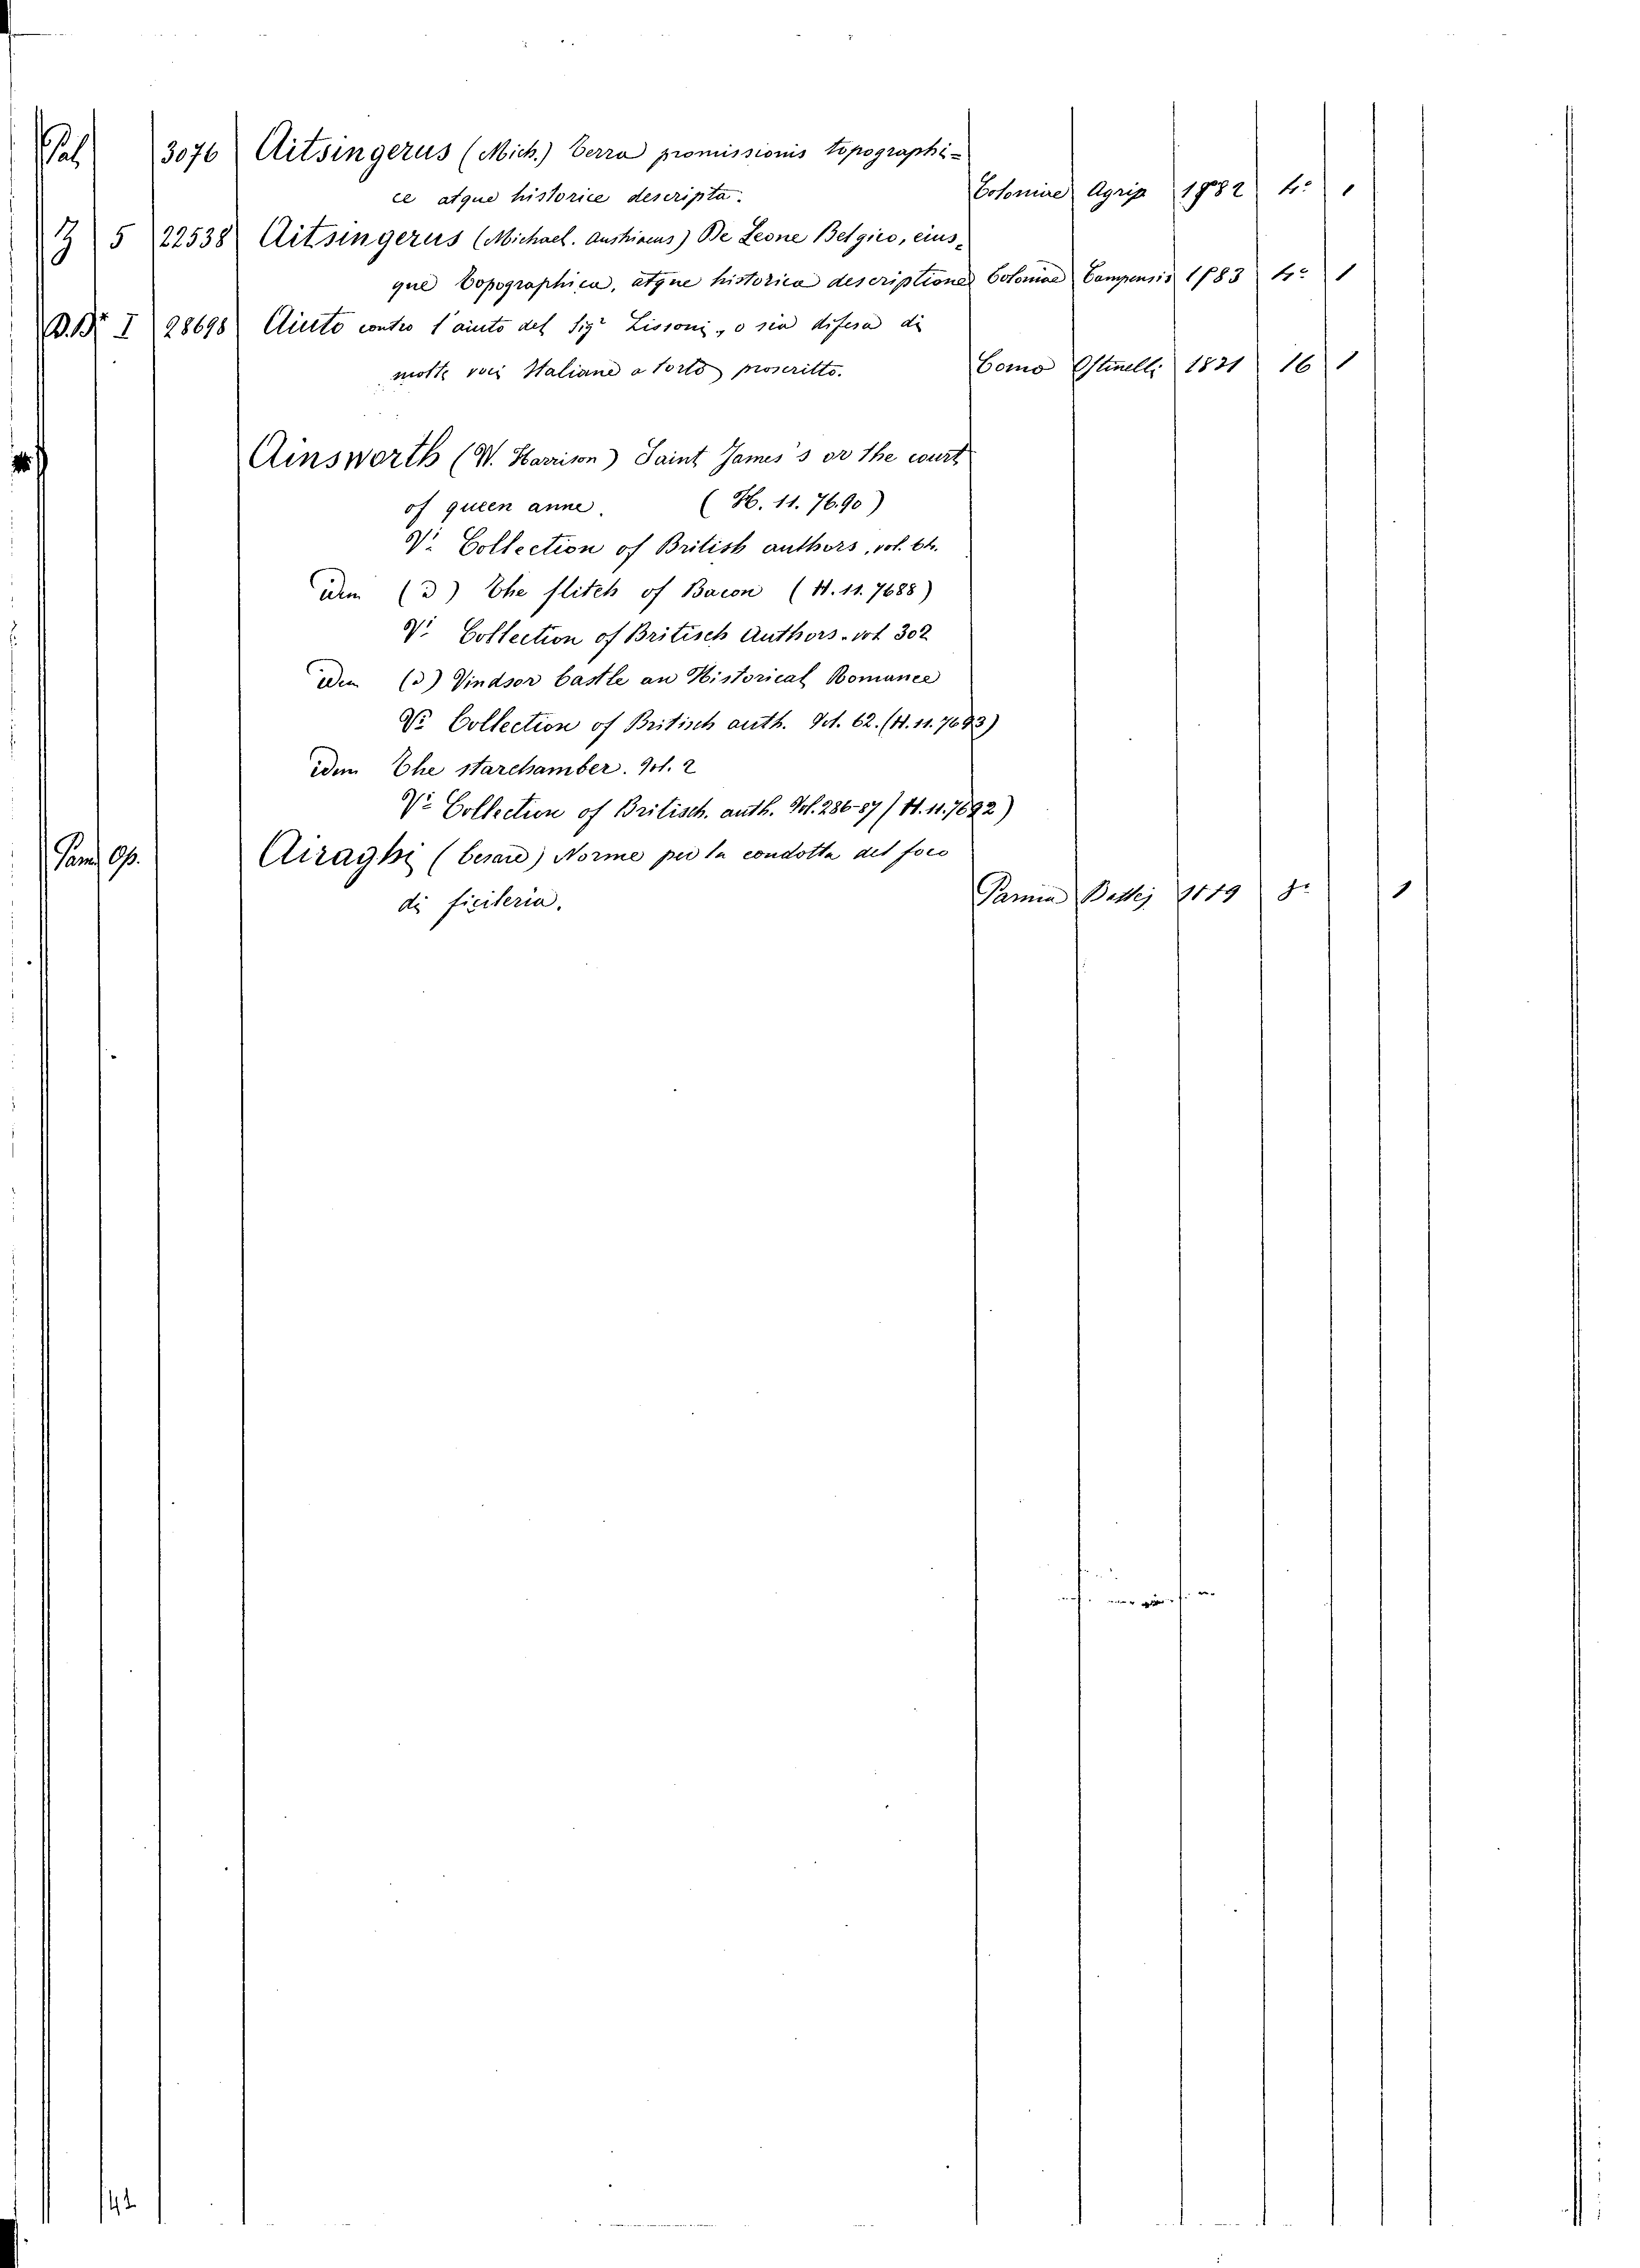 Pal 3076 Aitsingerus (Mich.) Terra promissionis topographi=
ce atque historice descripta. Coloniae Agrip 1582 4º 1
Z 5 22538 Aitsingerus (Michael. Austriacus) De Leone Belgico, eius,
que Topographica, atque historica descriptione Coloniae Campensis 1583 4º 1
B.B.r I 28698 Aiuto contro l'aiuto del Sigr Lissoni, o sia difesa di
molte voci Italiane a torto proscritte. Como Ostinelli 1831 16 1
Ainsworth (W. Harrison) Saint James's or the court
of queen anne. (H. 11. 7690)
Vi Collection of British authors, vol. 64.
idem (d) The flitch of Bacon (H. 11. 7688)
Vi Collection of Britisch Authors. vol 302
idem (d) Vindsor Castle an Historical Romance
Vi Collection of Britisch auth. Vol. 62. (H. 11. 7693)
idem The starchamber. Vol. 2
Vi Collection of Britisch. auth. Vol. 286-87 (H. 11. 7692)
Pam Op. Airaghi (Cesare) Norme per la condotta del foco
di fucileria. Parma Battej 8º 1
142